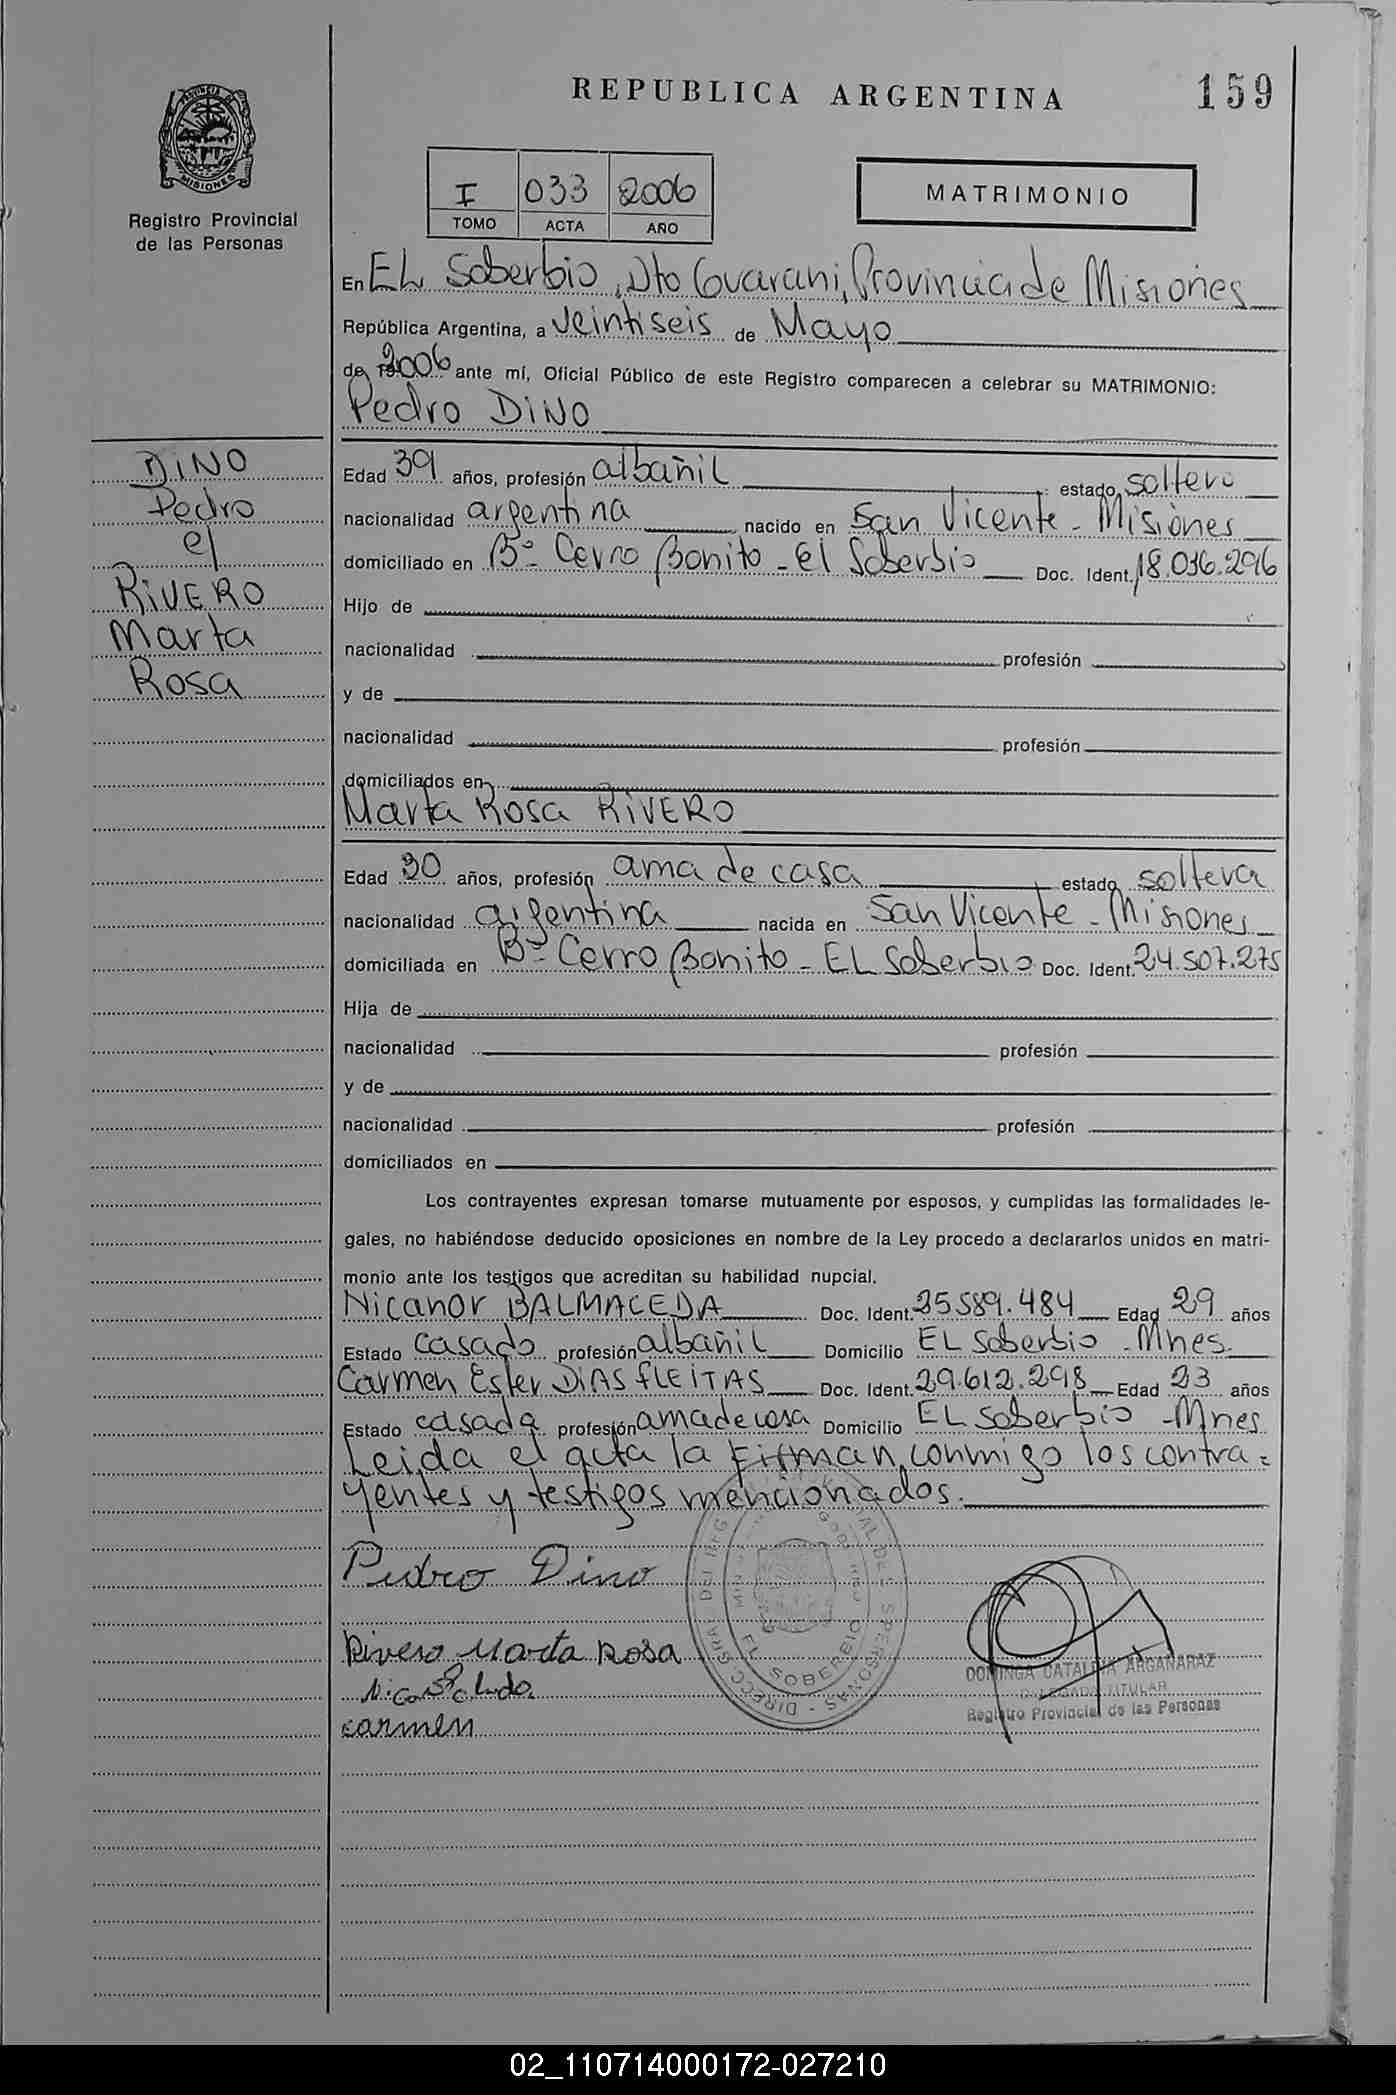 REPUBLICA ARGENTINA
159
PROVINCIA DE
MISIONES
Registro Provincial
de las Personas
I 033 2006
TOMO ACTA AÑO
MATRIMONIO
En EL Soberbio, Dto Guarani, Provincia de Misiones
República Argentina, a veintiseis de Mayo
de 2006 ante mí, Oficial Público de este Registro comparecen a celebrar su MATRIMONIO:
Pedro DINO
DINO
Pedro
el
RIVERO
Marta
Rosa
Edad 39 años, profesión albañil estado soltero
nacionalidad argentina nacido en San Vicente - Misiones
domiciliado en Bº Cerro Bonito - el Soberbio Doc. Ident. 18.036.296
Hijo de
nacionalidad profesión
y de
nacionalidad profesión
domiciliados en
Marta Rosa RIVERO
Edad 30 años, profesión ama de casa estado soltera
nacionalidad argentina nacida en San Vicente - Misiones
domiciliada en Bº Cerro Bonito - EL Soberbio Doc. Ident. 24.507.275
Hija de
nacionalidad profesión
y de
nacionalidad profesión
domiciliados en
Los contrayentes expresan tomarse mutuamente por esposos, y cumplidas las formalidades le-
gales, no habiéndose deducido oposiciones en nombre de la Ley procedo a declararlos unidos en matri-
monio ante los testigos que acreditan su habilidad nupcial.
Nicanor BALMACEDA Doc. Ident. 25.589.484 Edad 29 años
Estado casado profesión albañil Domicilio EL Soberbio - Mnes.
Carmen Ester DIAS FLEITAS Doc. Ident. 29.612.298 Edad 23 años
Estado casada profesión ama de casa Domicilio EL Soberbio - Mnes
Leida el acta la Firman conmigo los contra=
yentes y testigos mencionados.
Pedro Dino
Rivero Marta Rosa
carmen
EL SOBERBIO
DOMINGA CATALINA ARGAÑARAZ
DELEGADA TITULAR
Registro Provincial de las Personas
02_110714000172-027210